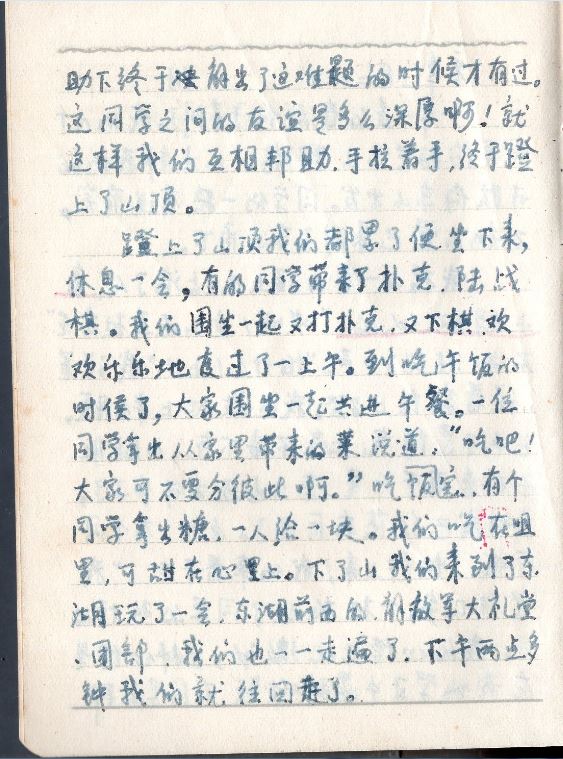 助下终于决解出了这难题的时候才有过。
这同学之间的友谊是多么深厚啊！就
这样我们互相邦助，手拉着手，终于蹬
上了山顶。
蹬上了山顶我们都累了便坐下来，
休息一会，有的同学带来了扑克，陆战
棋。我们围坐一起又打扑克，又下棋，欢
欢乐乐地度过了一上午。到吃午饭的
时候了，大家围坐一起共进午餐。一位
同学拿出从家里带来的菜说道，“吃吧！
大家可不要分彼此啊。”吃饭完，有个
同学拿出糖，一人给一块。我们吃在咀
里，可甜在心里上。下了山我们来到了东
湖玩了一会，东湖前面的，解放军大礼堂
、团部，我们也一一走遍了，下午两点多
钟我们就往回走了。